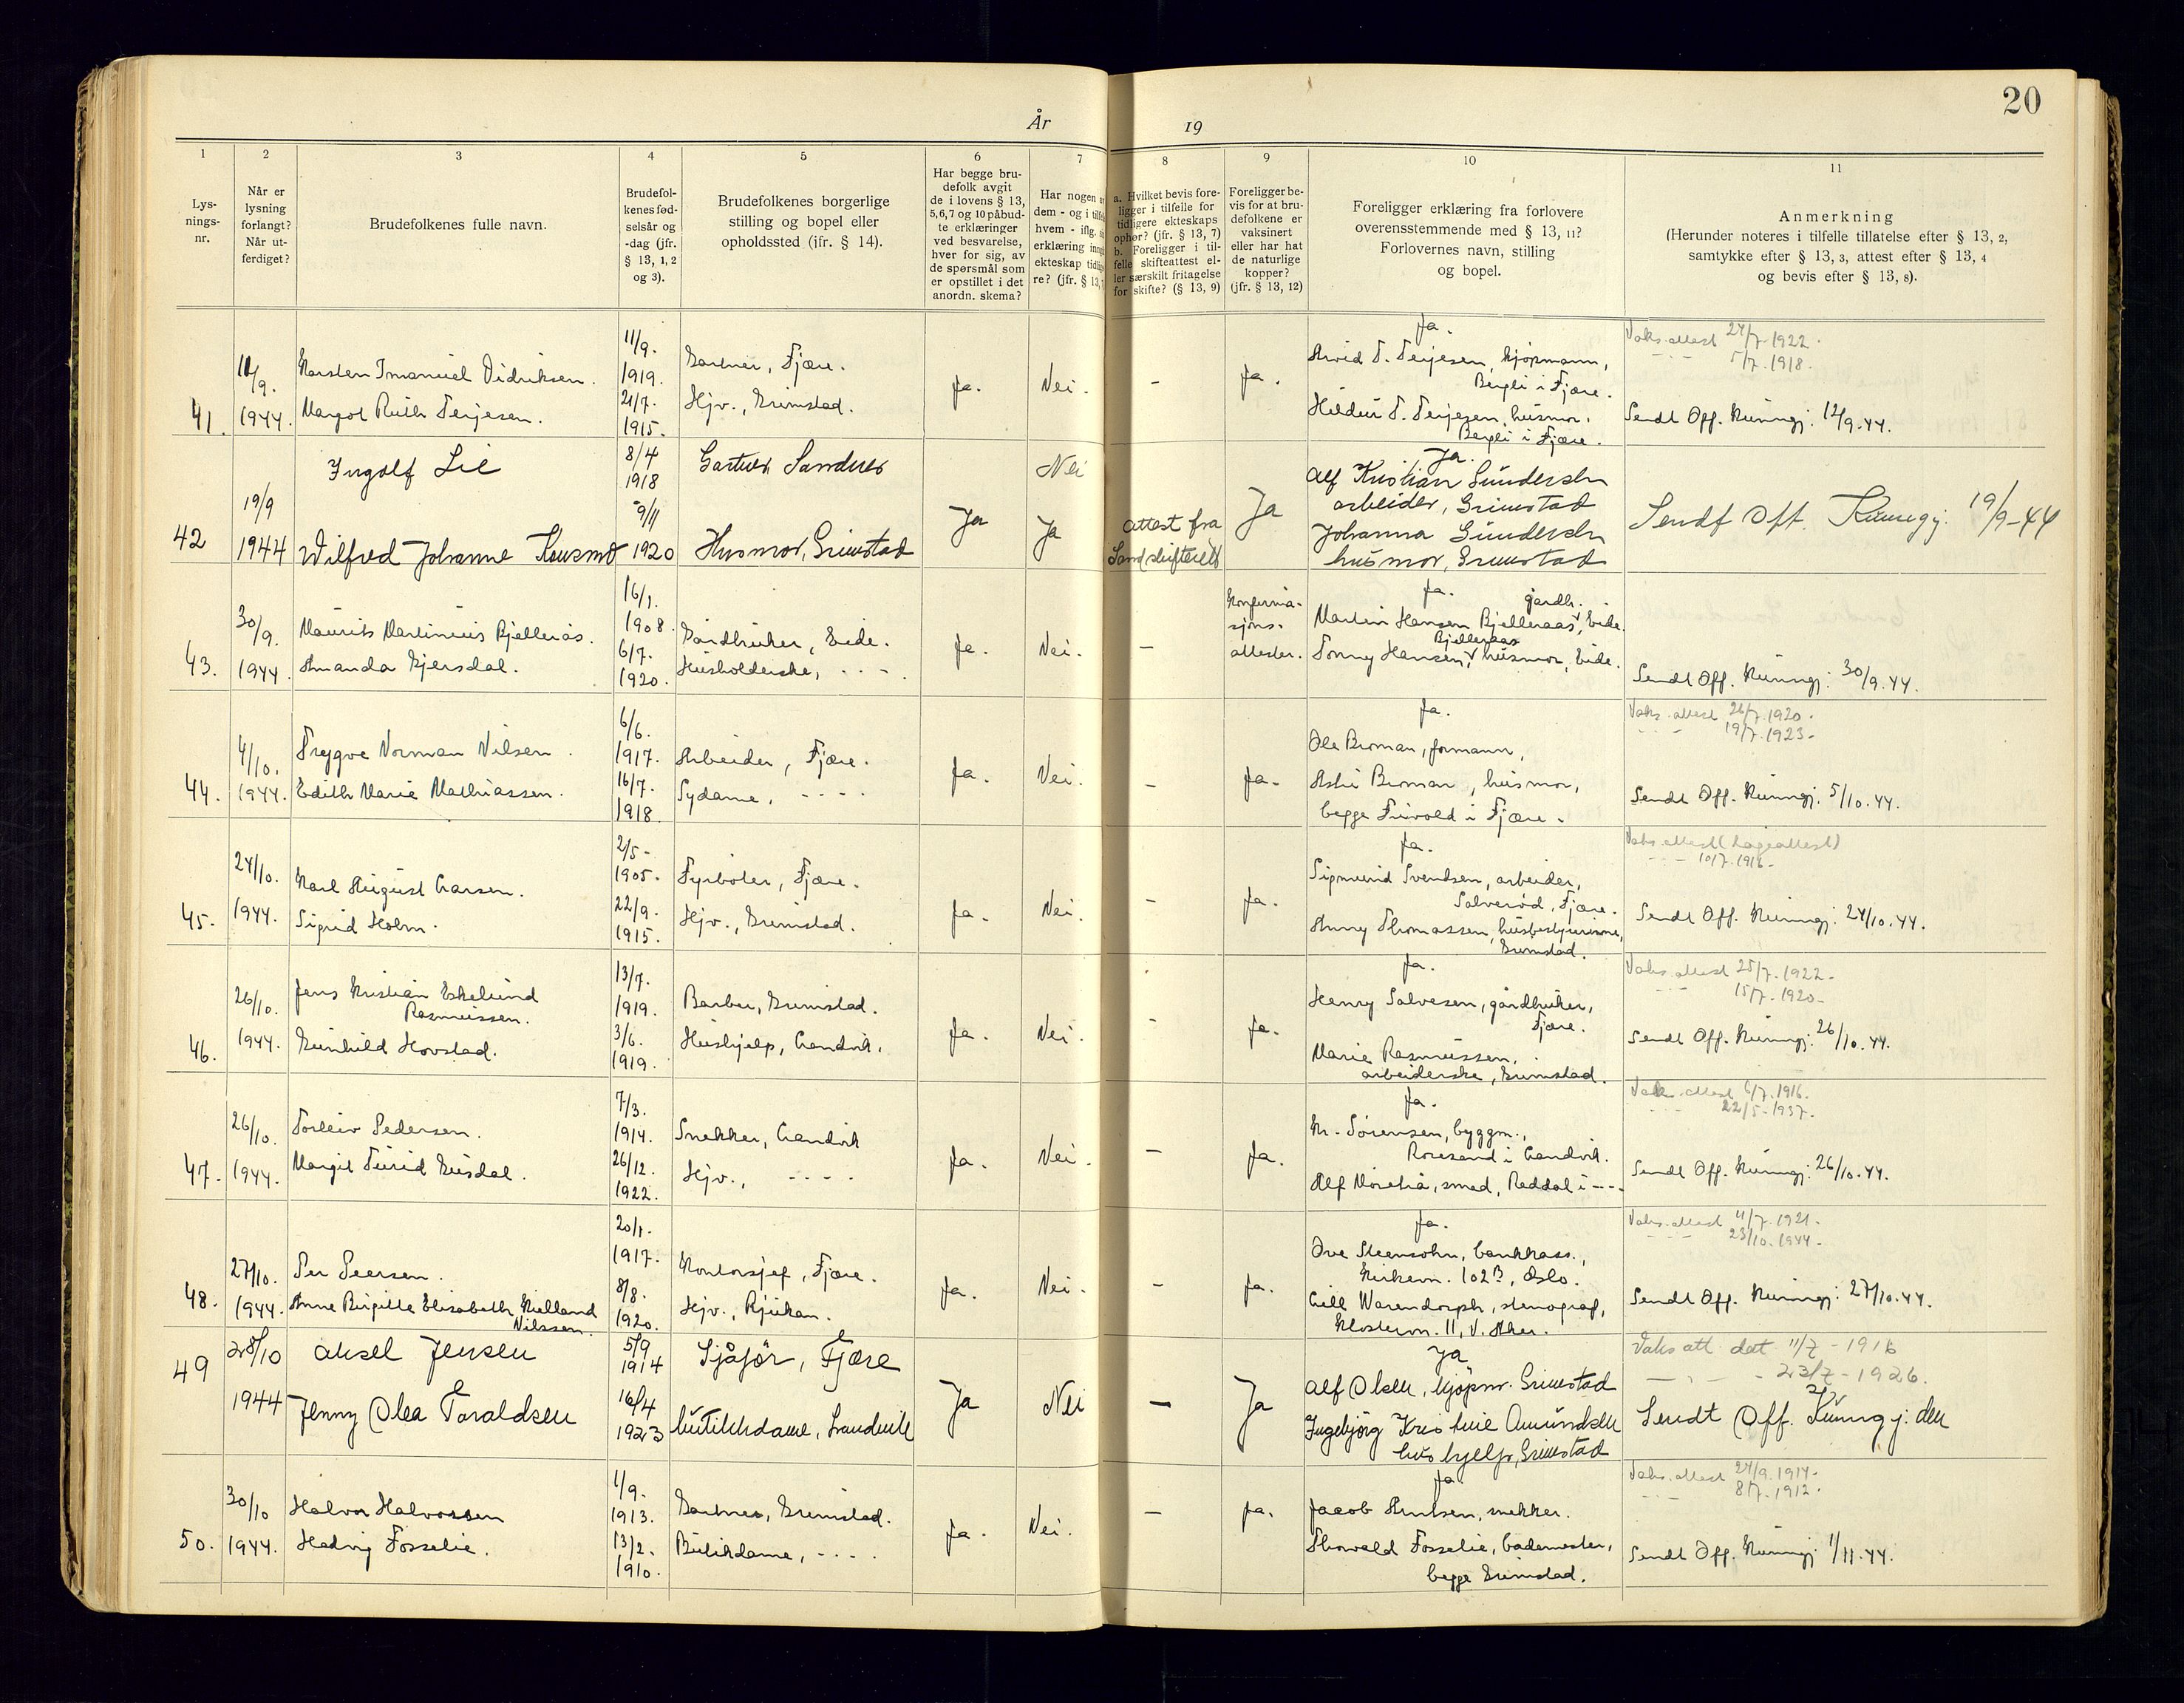 20
År 19
1 2 3 4 5 6 7 8 9 10 11
Lys-
nings-
nr.
Når er
lysning
forlangt?
Når ut-
ferdiget?
Brudefolkenes fulle navn.
Brudefol-
kenes fød-
selsår og
-dag (jfr.
§ 13, 1, 2
og 3).
Brudefolkenes borgerlige
stilling og bopel eller
opholdssted (jfr. § 14).
Har begge bru-
defolk avgit
de i lovens § 13,
5, 6, 7 og 10 påbud-
te erklæringer
ved besvarelse,
hver for sig, av
de spørsmål som
er opstillet i det
anordn. skema?
Har nogen a
dem - og i tilfe
hvem - iflg.
erklæring inng
ekteskap tidlig
re? (jfr. § 13,
a. Hvilket bevis fore-
ligger i tilfelle for
tidligere ekteskaps
ophør? (jfr. § 13, 7)
b. Foreligger i til-
felle skifteattest el-
ler særskilt fritagelse
for skifte? (§ 13, 9)
Foreligger be-
vis for at bru-
defolkene er
vaksinert
eller har hat
de naturlige
kopper?
(jfr. § 13, 12)
Foreligger erklæring fra forlovere
overensstemmende med § 13, 11?
Forlovernes navn, stilling
og bopel.
Anmerkning
(Herunder noteres i tilfelle tillatelse efter § 13, 2,
samtykke efter § 13, 3, attest efter § 13, 4
og bevis efter § 13, 8).
41.
11/9.
1944.
Karsten Imanuel Didriksen.
Margot Ruth Terjesen.
11/9.
1919.
21/7.
1915.
Gartner, Fjære.
Hjv., Grimstad.
Ja.
Nei.
-
Ja.
Ja.
Arvid T. Terjesen, kjøpmann,
Bergli i Fjære.
Hildur T. Terjesen, husmor,
Bergli i Fjære.
Vaks. attest 24/7. 1922.
- - 5/7. 1918.
Sendt Off. Kunngj. 12/9.44.
42
19/9
1944
Ingolf Lie
Wilfred Johanne
8/4
1918
9/11
1920
Gartner Sandnes
Husmor, Grimstad
Ja
Nei
Ja
attest fra
Sand skifterett
Ja
Ja.
Alf Kristian Gundersen
arbeider, Grimstad
Johanna Gundersen
husmor, Grimstad
Sendt Off. Kunngj. 19/9-44
43.
30/9.
1944.
Maurits Martinius Bjellerås.
Amanda Gjersdal.
16/1.
1908.
6/7.
1920.
Gårdbruker, Eide.
Husholderske, - - -.
Ja.
Nei.
-
Konfirma-
sjons-
attester.
Ja.
gårdb.
Martin Hansen Bjelleraas, Eide.
Bjelleraas
Tonny Hansen, husmor, Eide.
Sendt Off. Kunngj. 30/9.44.
44.
4/10.
1944.
Trygve Norman Nilsen.
Edith Marie Mathiassen.
6/6.
1917.
16/7.
1918.
Arbeider, Fjære.
Sydame, - - - -
Ja.
Nei.
-
Ja.
Ja.
Ole Broman, formann,
Asta Broman, husmor,
begge Frivold i Fjære.
Vaks. attest 26/7. 1920.
- - 19/7. 1923.
Sendt Off. Kunngj. 5/10.44.
45.
24/10.
1944.
Karl August Larsen.
Sigrid Holm.
2/5-
1905.
22/9.
1915.
Fyrbøter, Fjære.
Hjv., Grimstad.
Ja.
Nei.
-
Ja.
Ja.
Sigmund Svendsen, arbeider,
Salverød, Fjære.
Anny Thomassen, husbestyrerinne,
Grimstad.
Vaks. attest (Lægeattest)
- - 10/7. 1916.
Sendt Off. Kunngj. 24/10.44.
46.
26/10.
1944.
Jens Kristian Eskelund
Rasmussen.
Gunhild Hovstad.
13/7.
1919.
3/6.
1919.
Barber, Grimstad.
Hushjelp, Landvik.
Ja.
Nei.
-
Ja.
Ja.
Henry Salvesen, gårdbruker,
Fjære.
Marie Rasmussen,
arbeiderske, Grimstad.
Vaks. attest 25/7. 1922.
- - 15/7. 1920.
Sendt Off. Kunngj. 26/10.44.
47.
26/10.
1944.
Torleiv Pedersen.
Margit Turid Gusdal.
7/3.
1914.
26/12.
1922.
Snekker, Landvik
Hjv., - - - -
Ja.
Nei.
-
Ja.
Ja.
Kr. Sørensen, byggm.,
Roresand i Landvik.
Alf Moreliå, smed, Reddal i - - -.
Vaks. attest 6/7. 1916.
- - 22/5. 1937.
Sendt Off. Kunngj. 26/10.44.
48.
27/10.
1944.
Per Peersen.
Anne Birgitte Elisabeth Kielland
Nilssen.
20/1.
1917.
8/8.
1920.
Kontorsjef, Fjære.
Hjv., Rjukan.
Ja.
Nei.
-
Ja.
Ja.
Ove Steensohn, bankkass.,
Kirkevn. 102 B, Oslo.
Lill Warendorph, stenograf,
Klostervn. 11, V. Aker.
Vaks. attest 11/7. 1921.
- - 23/10. 1944.
Sendt Off. Kunngj. 27/10.44.
49
28/10
1944
Aksel Jensen
Jenny Olea Taraldsen
5/9
1914
16/4
1923
Sjåfør, Fjære
butikkdame, Landvik
Ja
Nei
-
Ja
Ja
Alf Olsen, kjøpm. Grimstad
Ingebjørg Kristine Amundsen
hushjelp, Grimstad
Vaks att. dat 11/7-1916
- - - 23/7-1926.
Sendt Off. Kunngj. den
50.
30/10
1944.
Halvor Halvorsen
Hedvig Fosselie.
1/9.
1913.
13/2.
1910.
Gartner, Grimstad.
Butikdame, - - -
Ja.
Nei.
-
Ja.
Ja
Jacob Knutsen, snekker.
Thorvald Fosselie, bademester,
begge Grimstad.
Vaks. attest 24/9. 1914.
- - 8/7. 1912.
Sendt Off. Kunngj. 1/11.44.